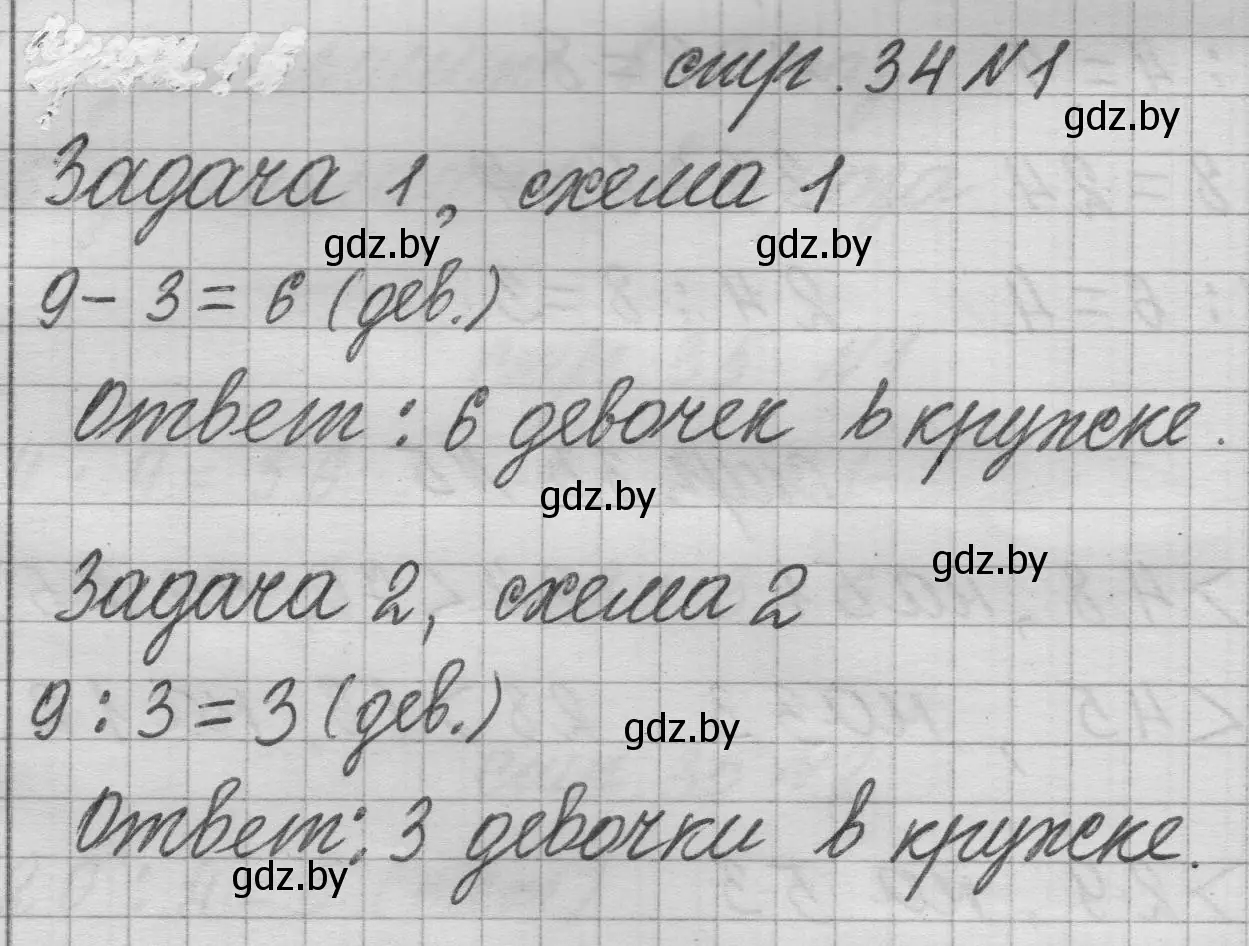 стр. 34 №1
gdz.by
Задача 1, схема 1
gdz.by gdz.by
9 - 3 = 6 (дев.)
Ответ: 6 девочек в кружке.
gdz.by
gdz.by
Задача 2, схема 2
9 : 3 = 3 (дев.)
gdz.by
Ответ: 3 девочки в кружке.
gdz.by